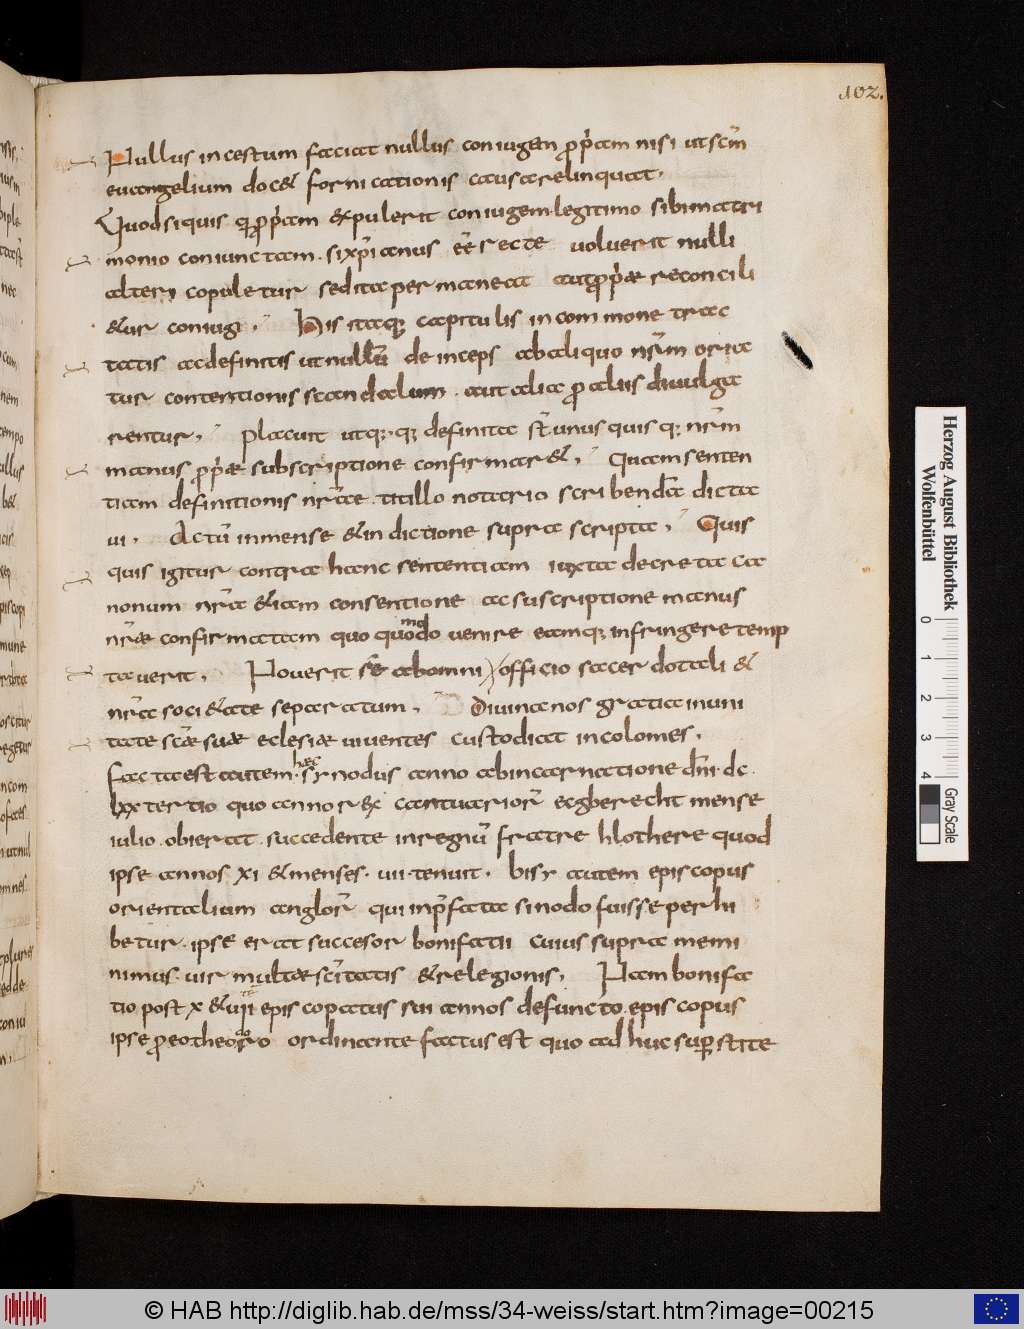 102.
Nullus incestum faciat nullus coniugem ꝓpriam nisi ut scm̄
euangelium doc& fornicationis causa relinquat.
Quodsiquis q ꝓpriam expulerit coniugem legitimo sibi matri
monio coniunctam. si xp̄ianus eē recte voluerit nulli
alteri copuletur sed ita permaneat aut ꝓpriae reconcili
&ur coniugi. His itaq; capitulis in commone trac
tatis ac definitis ut nullū deinceps ab aliquo nr̄m oria
tur contentionis scandalum. aut alia ꝓ aliis diuulga
rentur. placuit utq; q; definita st̄ unus quisq; nr̄m
manus ꝓpriae subscriptione confirmar&. Quam senten
tiam definitionis nr̄ae titillo notario scribendā dicta
ui. Actū in mense & indictione supra scripta. Quis
quis igitur contra hanc sententiam iuxta decreta ca
nonum nr̄a &iam consentione ac suscriptione manus
nr̄ae confirmatam quo quomodo uenire eamq; infringere temp
tauerit. Nouerit sē ab omni officio sacerdotali &
nr̄a soci&ate separatum. Diuina nos gratia in uni
tate scae suae eclesiae uiuentes custodiat incolomes.
facta est autem haec synodus anno ab incarnatione dn̄i. dc.
lxx tertio quo anno rex cantuariorū ecgberecht mense
iulio. obierat. succedente in regnū fratre hlothere quod
ipse annos xi & menses. uii. tenuit. bisi autem episcopus
orientalium anglorū qui in p̄fata sinodo fuisse perhi
betur. ipse erat succesor bonifatii cuius supra memi
nimus. uir multae sc̄itatis & relegionis. Nam bonifa
tio post x & uii episcopatus sui annos defuncto. episcopus
ipse ꝓ eo theodoro ordinante factus est quo adhuc suꝑstite
Herzog August Bibliothek
Wolfenbüttel
0 1 2 3 4
Gray Scale
© HAB http://diglib.hab.de/mss/34-weiss/start.htm?image=00215